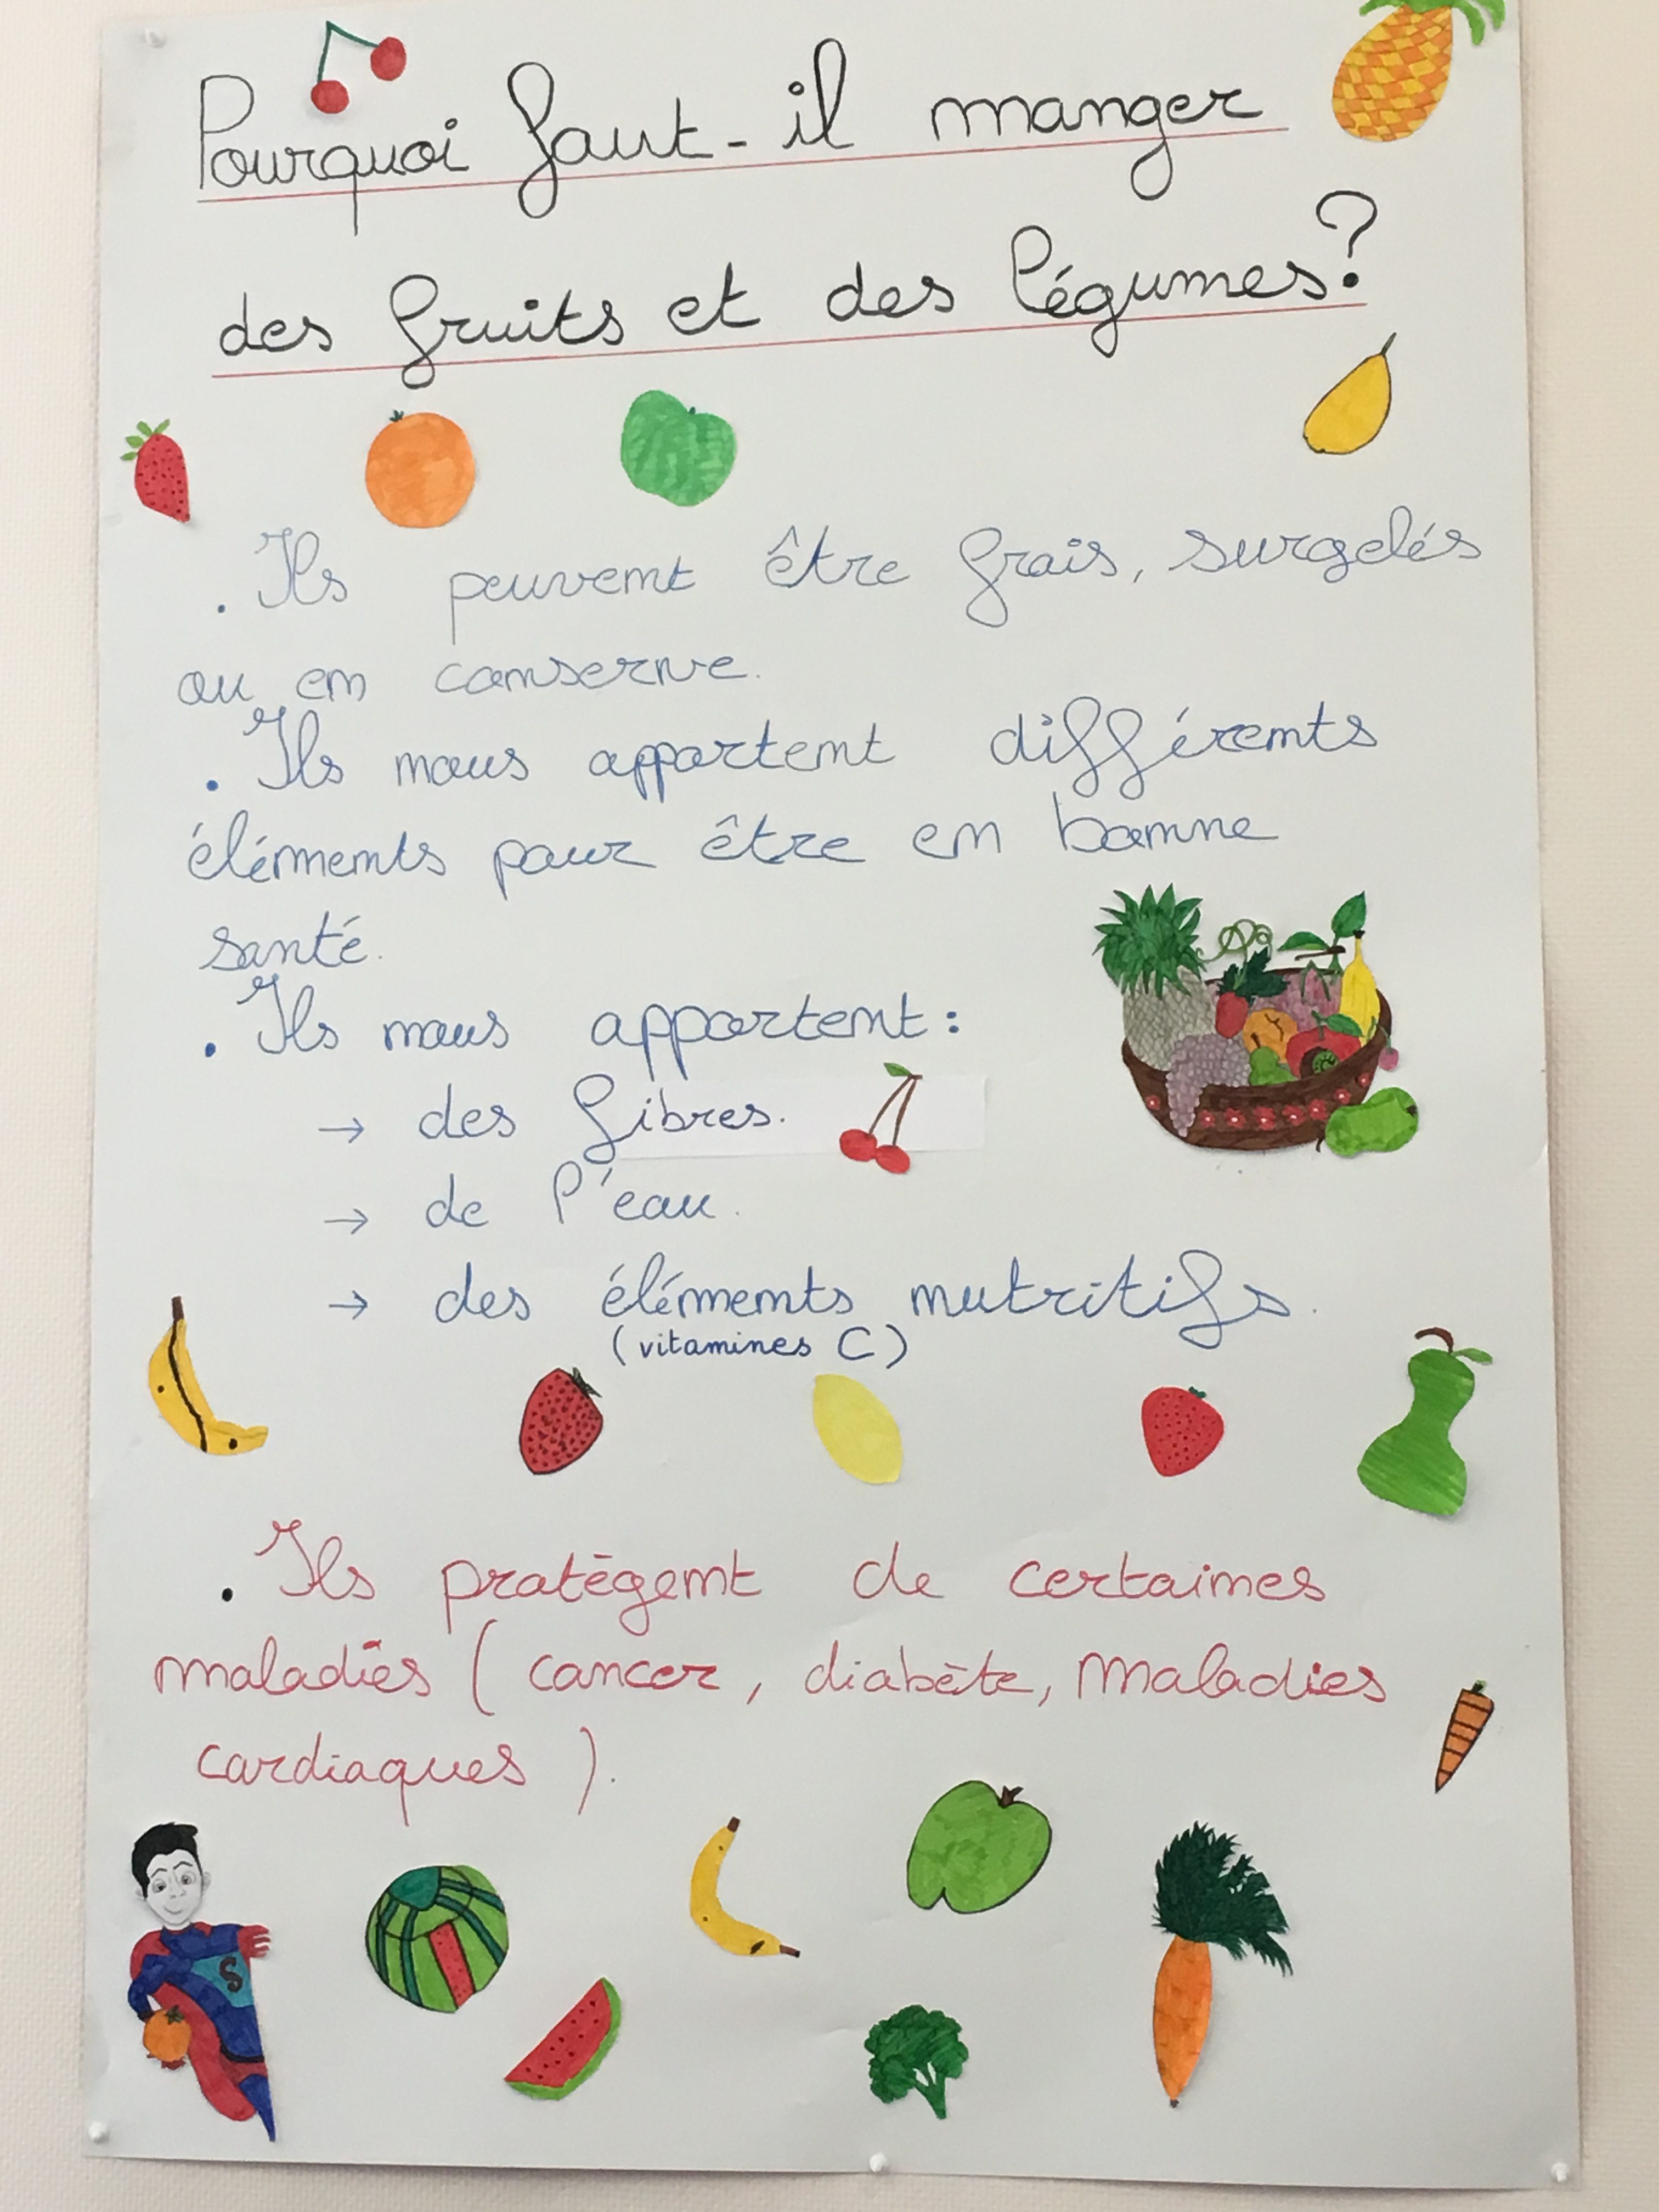 Pourquoi faut-il manger
des fruits et des légumes?
. Ils peuvent être frais, surgelés
ou en conserve.
. Ils nous apportent différents
éléments pour être en bonne
santé.
. Ils nous apportent :
→ des fibres.
→ de l'eau.
→ des éléments nutritifs.
(vitamines C)
. Ils protègent de certaines
maladies (cancer, diabète, maladies
cardiaques).
S